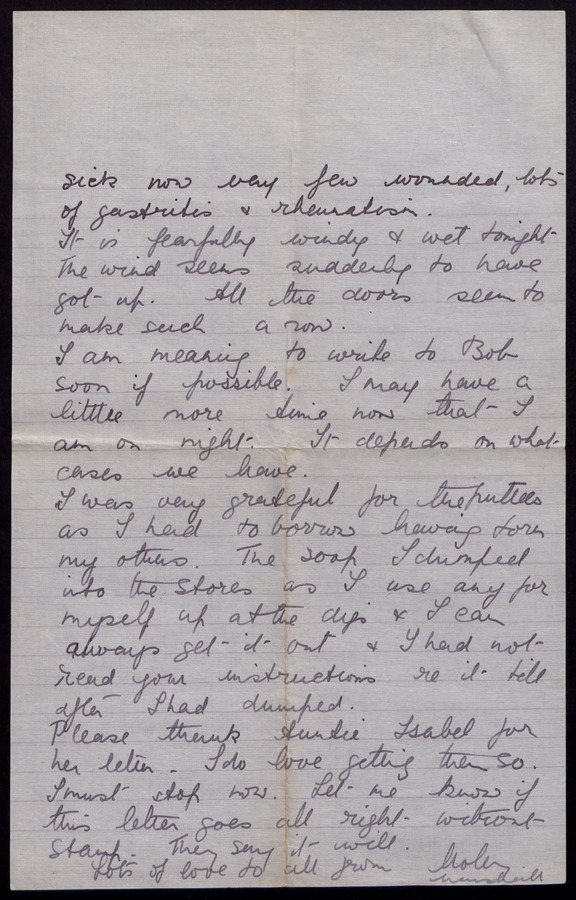 sick now very few wounded, lots
of gastritis & rheumatism.
It is fearfully windy & wet tonight
The wind seems suddenly to have
got up. All the doors seem to
make such a row.
I am meaning to write to Bob
soon if possible. I may have a
little more time now that I
am on night. It depends on what
cases we have.
I was very grateful for the puttees
as I had to borrow having torn
my others. The soap I dumped
into the stores as I use any for
myself up at the digs & I can
always get it out & I had not
read your instructions re it till
after I had dumped.
Please thank Auntie Isabel for
her letter. I do love getting them so.
I must stop now. Let me know if
this letter goes all right without
stamp. They say it will.
Lots of love to all from